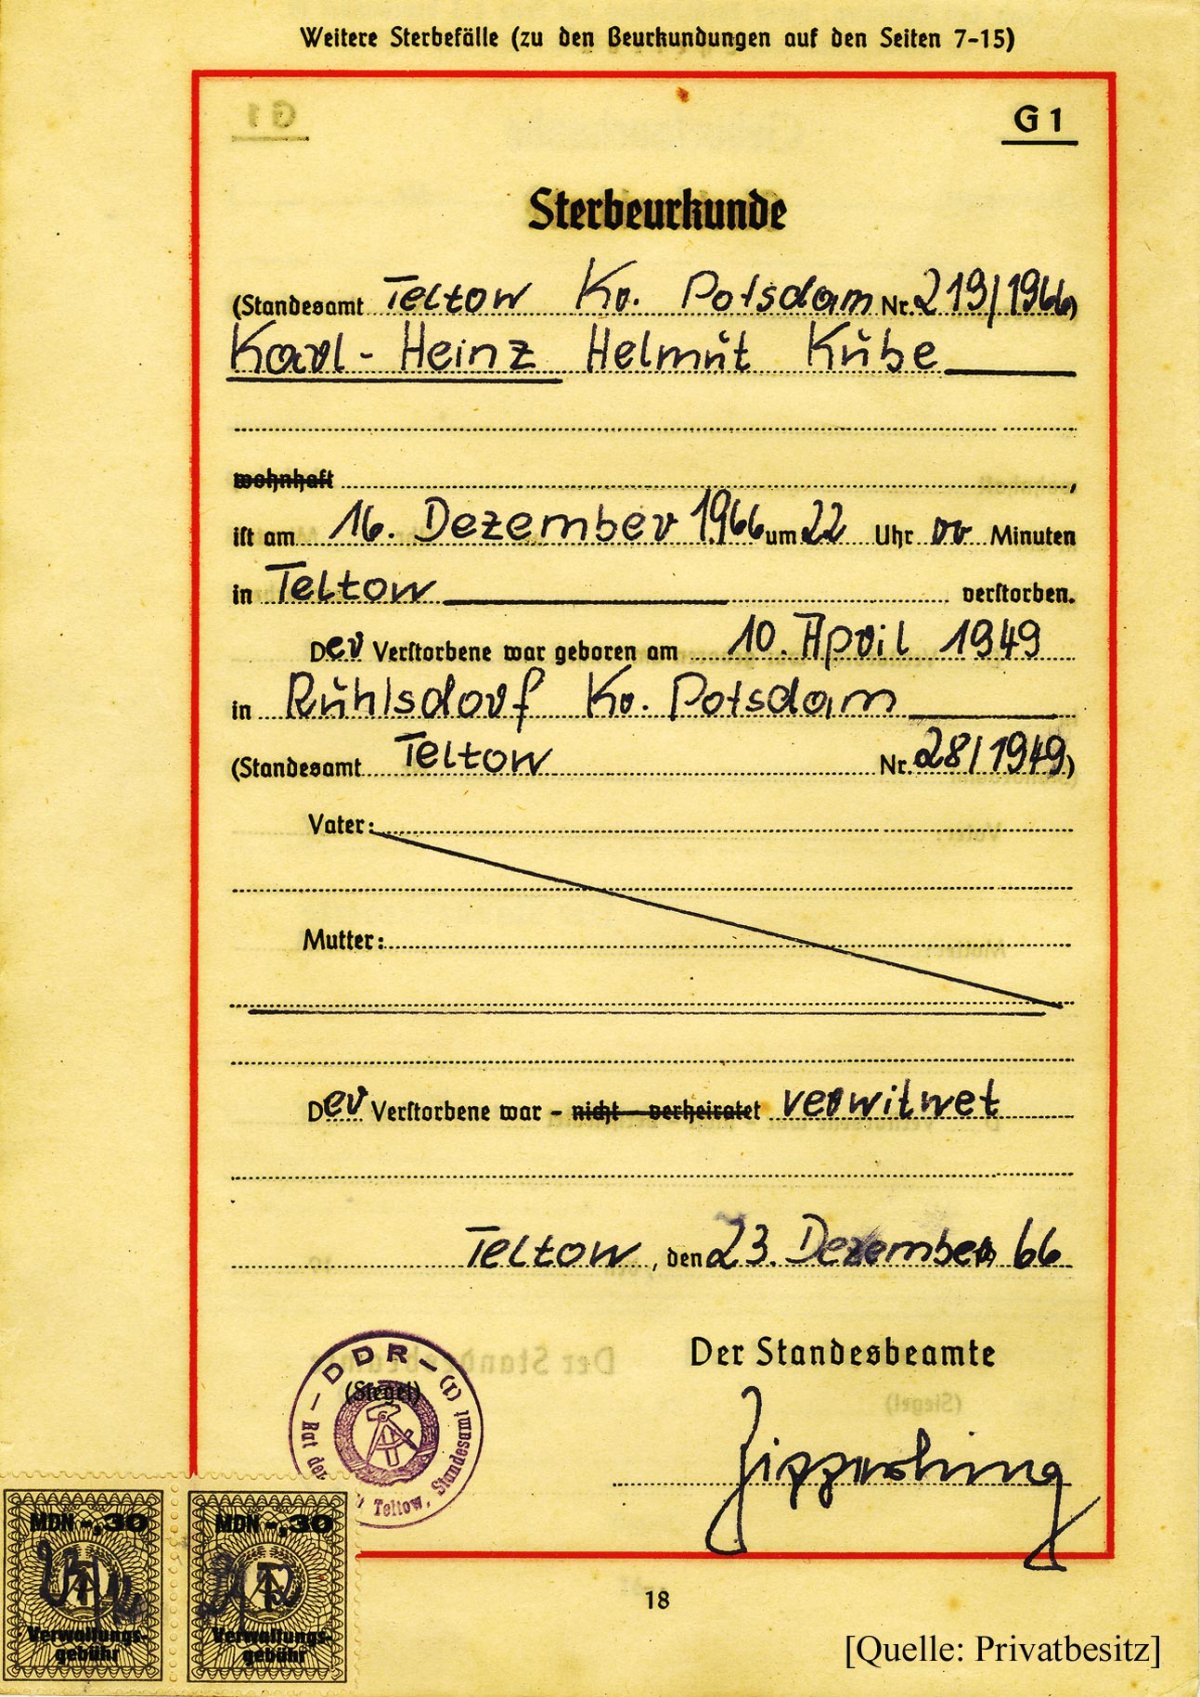 Weitere Sterbefälle (zu den Beurkundungen auf den Seiten 7-15)
G 1
Sterbeurkunde
(Standesamt Teltow Kr. Potsdam Nr. 219/1966)
Karl-Heinz Helmut Kube
wohnhaft ,
ist am 16. Dezember 1966 um 22 Uhr 00 Minuten
in Teltow verstorben.
Der Verstorbene war geboren am 10. April 1949
in Ruhlsdorf Kr. Potsdam
(Standesamt Teltow Nr. 28/1949)
Vater:
Mutter:
Der Verstorbene war - nicht - verheiratet verwitwet
Teltow, den 23. Dezember 66
Der Standesbeamte
(Siegel)
- DDR - (1)
Rat der Teltow, Standesamt
MDN -,30
Verwaltungs-
gebühr
MDN -,30
Verwaltungs-
gebühr
18
[Quelle: Privatbesitz]